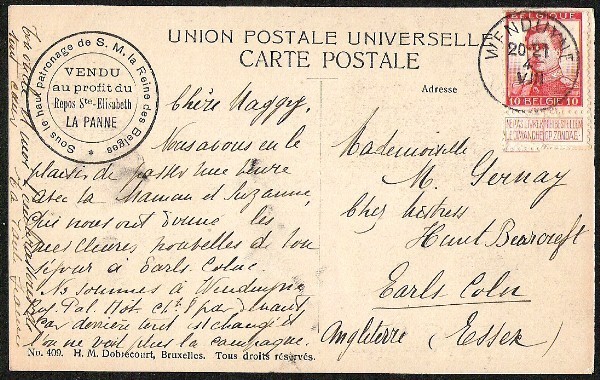 UNION POSTALE UNIVERSELLE
CARTE POSTALE
Sous le haut patronage de S. M. la Reine des Belges
VENDU
au profit du
Repos Ste-Elisabeth
LA PANNE
Adresse
BELGIQUE
10 BELGIE 10
NE PAS LIVRER LE DIMANCHE
NIET BESTELLEN OP ZONDAG
WENDUYNE
20-21
4
VII
Chère Maggy,
Nous avons eu le
plaisir de passer une heure
avec la Maman et Suzanne,
qui nous ont donné les
meilleures nouvelles de ton
séjour à Earls Colne.
Ns sommes à Wenduyne
par devant,
car derrière tout est changé et
on ne voit plus la campagne.
Mademoiselle
M. Gernay
Chez Mistress
Hunt Bearcroft
Earls Coln
Angleterre (Essex)
No. 409. H. M. Dobrecourt, Bruxelles. Tous droits réservés.